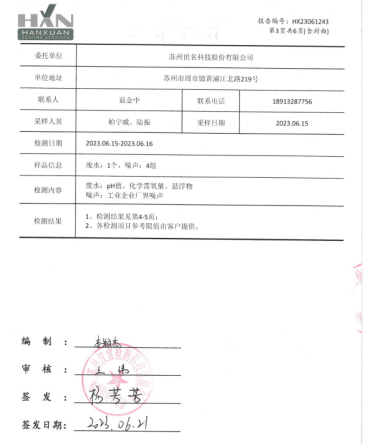 HXN
HANXUAN
报告编号：HX23061243
第3页共6页(含封面)
委托单位 苏州世名科技股份有限公司
单位地址 苏州市周市镇黄浦江北路219号
联系人 茹金中 联系电话 18913287756
采样人员 柏宇威、陆振 采样日期 2023.06.15
检测日期 2023.06.15-2023.06.16
样品信息 废水：1个，噪声：4组
检测内容 废水：pH值、化学需氧量、悬浮物
噪声：工业企业厂界噪声
检测结果 1、检测结果见第4-5页；
2、各检测项目参考限值由客户提供。
编 制 ：
审 核 ： 王
签 发 ： 杨芳芳
签发日期： 2023.06.21